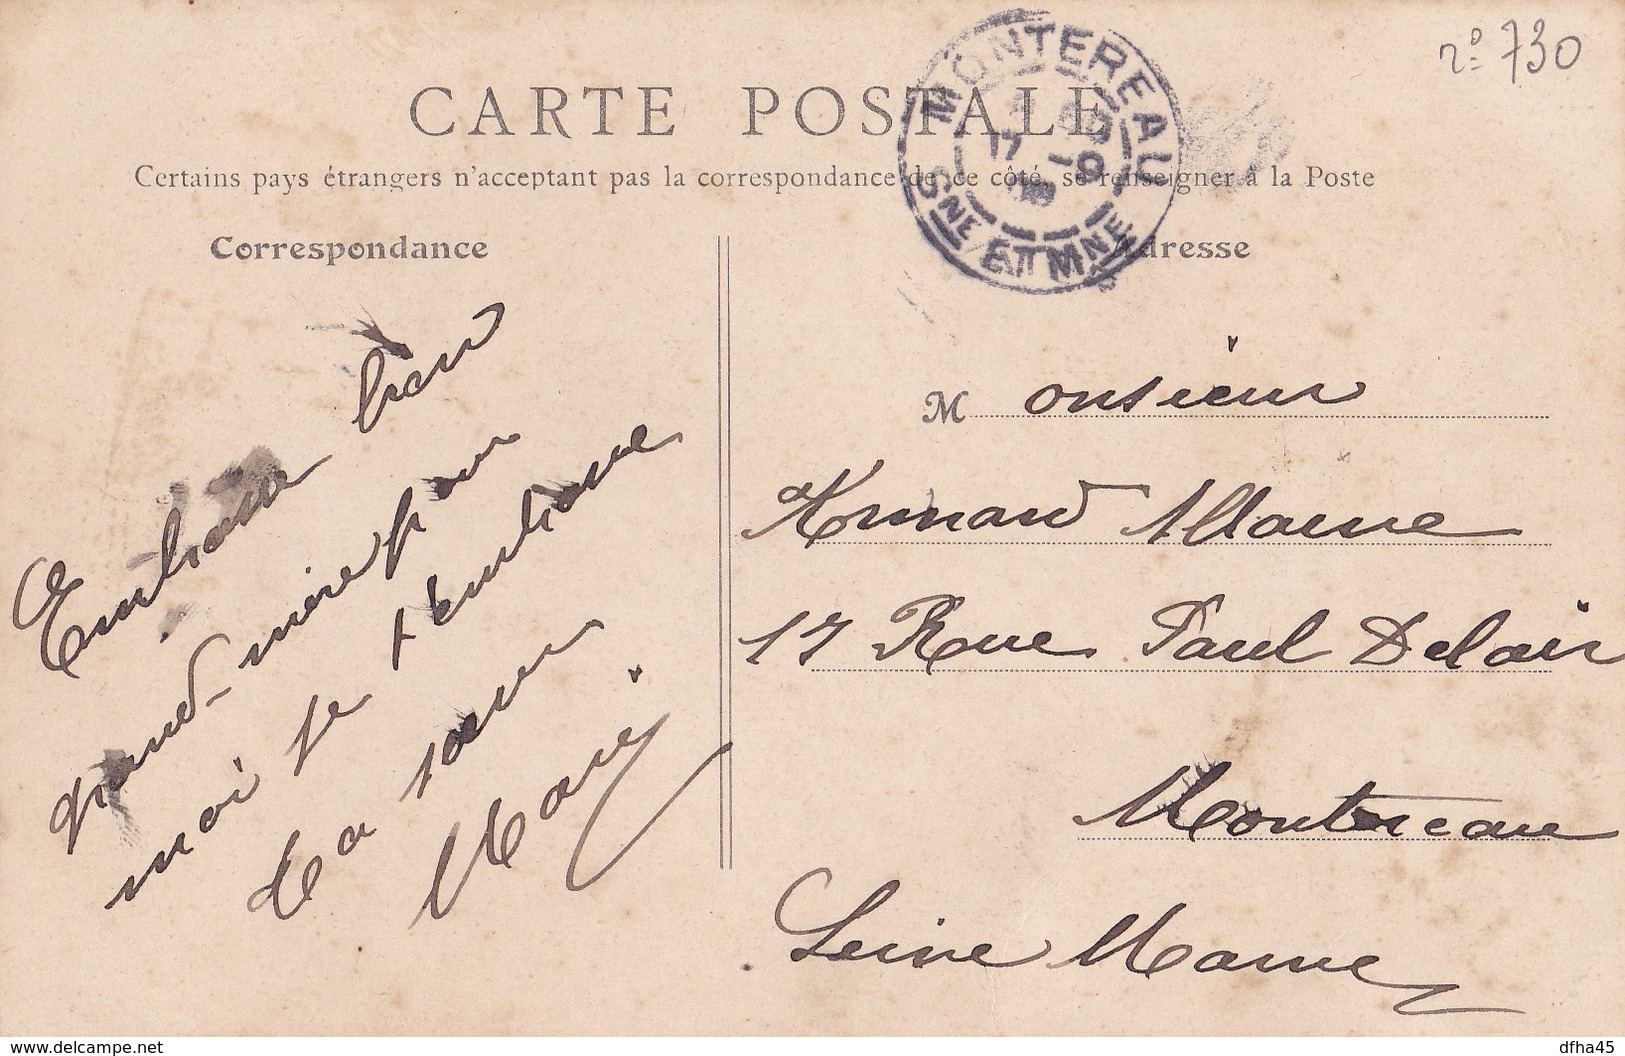 nº 730
CARTE POSTALE
Certains pays étrangers n'acceptant pas la correspondance de ce côté, se renseigner à la Poste
MONTEREAU
SNE ET MNE
Correspondance
Embrasse bien
grand-mère pour
moi je t'embrasse
Ta sœur
Marie
Adresse
Monsieur
Armand Allaume
17 Rue Paul Delair
Montereau
Seine Marne
www.delcampe.net
dfha45